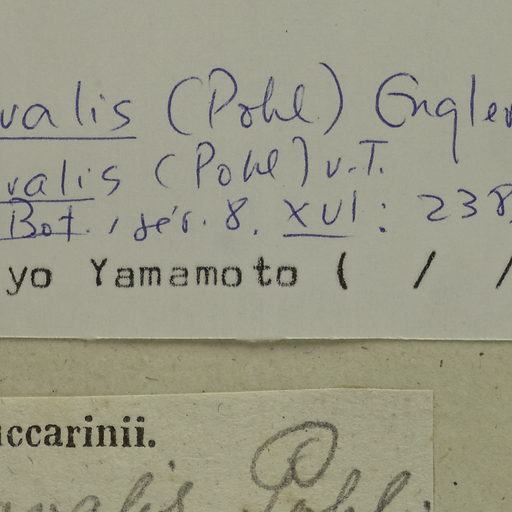 valis (Pohl) Engler
valis (Pohl) v.T.
Bot., sér. 8. XVI: 238,
yo Yamamoto ( / /
ccarinii.
valis Pohl.